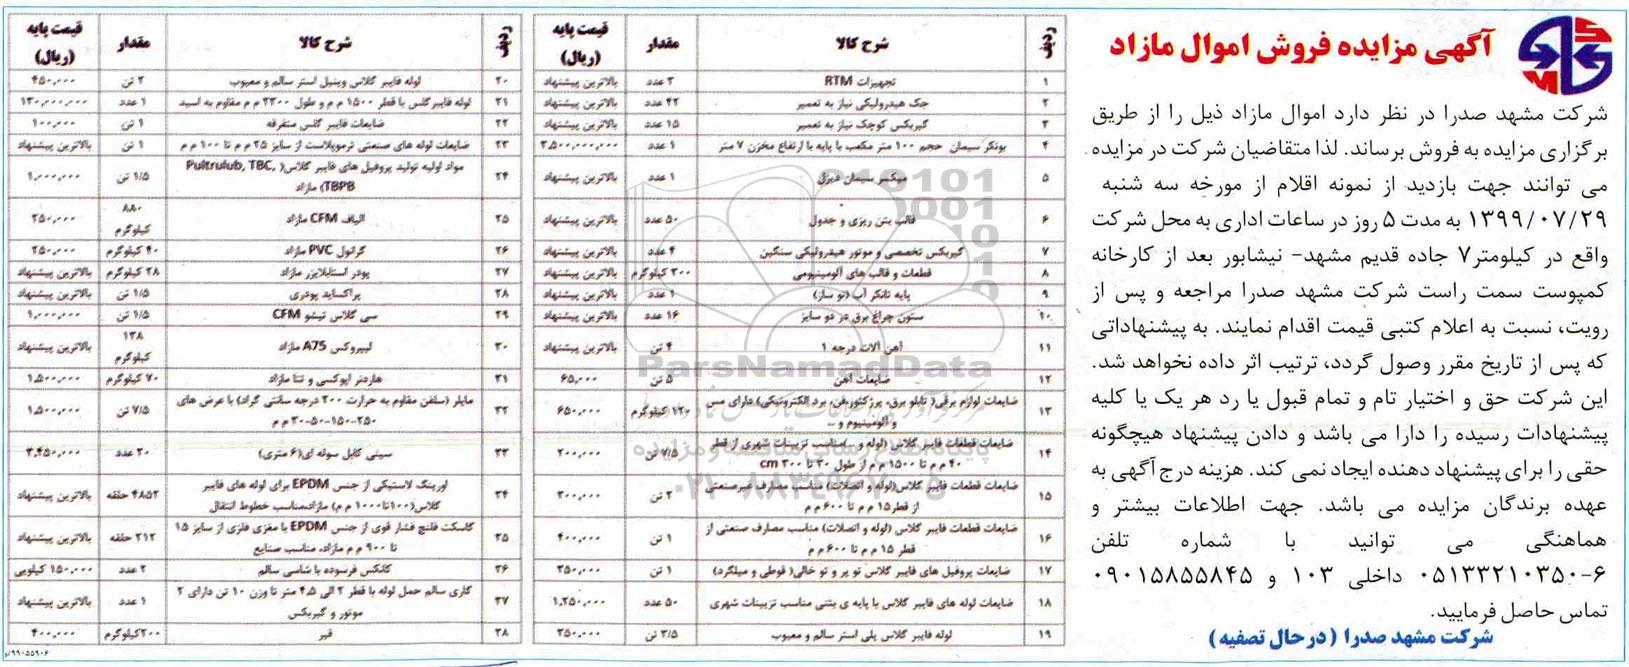 آگهی مزایده فروش اموال مازاد
شرکت مشهد صدرا در نظر دارد اموال مازاد ذیل را از طریق
برگزاری مزایده به فروش برساند. لذا متقاضیان شرکت در مزایده
می توانند جهت بازدید از نمونه اقلام از مورخه سه شنبه
۱۳۹۹/۰۷/۲۹ به مدت ۵ روز در ساعات اداری به محل شرکت
واقع در کیلومتر۷ جاده قدیم مشهد- نیشابور بعد از کارخانه
کمپوست سمت راست شرکت مشهد صدرا مراجعه و پس از
رویت، نسبت به اعلام کتبی قیمت اقدام نمایند. به پیشنهاداتی
که پس از تاریخ مقرر وصول گردد، ترتیب اثر داده نخواهد شد.
این شرکت حق و اختیار تام و تمام قبول یا رد هر یک یا کلیه
پیشنهادات رسیده را دارا می باشد و دادن پیشنهاد هیچگونه
حقی را برای پیشنهاد دهنده ایجاد نمی کند. هزینه درج آگهی به
عهده برندگان مزایده می باشد. جهت اطلاعات بیشتر و
هماهنگی می توانید با شماره تلفن
۰۵۱۳۳۲۱۰۳۵۰-۶ داخلی ۱۰۳ و ۰۹۰۱۵۸۵۵۸۴۵
تماس حاصل فرمایید.
شرکت مشهد صدرا (درحال تصفیه)
ردیف شرح کالا مقدار قیمت پایه (ریال)
۱ تجهیزات RTM ۳ عدد بالاترین پیشنهاد
۲ جک هیدرولیکی نیاز به تعمیر ۴۲ عدد بالاترین پیشنهاد
۳ گیربکس کوچک نیاز به تعمیر ۱۵ عدد بالاترین پیشنهاد
۴ بونکر سیمان حجم ۱۰۰ متر مکعب با پایه با ارتفاع مخزن ۷ متر ۱ عدد ۳,۵۰۰,۰۰۰,۰۰۰
۵ میکسر سیمان دیزل ۱ عدد بالاترین پیشنهاد
۶ قالب بتن ریزی و جدول ۵۰ عدد بالاترین پیشنهاد
۷ گیربکس تخصصی و موتور هیدرولیکی سنگین ۴ عدد بالاترین پیشنهاد
۸ قطعات و قالب های آلومینیومی ۳۰۰ کیلوگرم بالاترین پیشنهاد
۹ پایه تانکر آب (نو ساز) ۱ عدد بالاترین پیشنهاد
۱۰ ستون چراغ برق در دو سایز ۱۶ عدد بالاترین پیشنهاد
۱۱ آهن آلات درجه ۱ ۴ تن بالاترین پیشنهاد
۱۲ ضایعات آهن ۵ تن ۶۵,۰۰۰
۱۳ ضایعات لوازم برقی( تابلو برق، پرژکتور،فن، برد الکترونیکی) دارای مس
و آلومینیوم و ... ۱۲۰ کیلوگرم ۶۵۰,۰۰۰
۱۴ ضایعات قطعات فایبر گلاس (لوله و ...)مناسب تزیینات شهری از قطر
۴۰ م م تا ۱۵۰۰ م م از طول ۳۰ تا ۳۰۰ cm ۷/۵ تن ۲۰۰,۰۰۰
۱۵ ضایعات قطعات فایبر گلاس(لوله و اتصلات) مناسب مصارف غیرصنعتی
از قطر۱۵ م م تا ۶۰۰ م م ۲ تن ۳۰۰,۰۰۰
۱۶ ضایعات قطعات فایبر گلاس (لوله و اتصلات) مناسب مصارف صنعتی از
قطر ۱۵ م م تا ۶۰۰ م م ۱ تن ۴۰۰,۰۰۰
۱۷ ضایعات پروفیل های فایبر گلاس تو پر و تو خالی( قوطی و میلگرد) ۱ تن ۳۵۰,۰۰۰
۱۸ ضایعات لوله های فایبر گلاس با پایه ی بتنی مناسب تزیینات شهری ۵۰ عدد ۱,۲۵۰,۰۰۰
۱۹ لوله فایبر گلاس پلی استر سالم و معیوب ۳/۵ تن ۳۵۰,۰۰۰
ردیف شرح کالا مقدار قیمت پایه (ریال)
۲۰ لوله فایبر گلاس وینیل استر سالم و معیوب ۲ تن ۴۵۰,۰۰۰
۲۱ لوله فایبرگلس با قطر ۱۵۰۰ م م و طول ۲۳۰۰ م م مقاوم به اسید ۱ عدد ۱۳۰,۰۰۰,۰۰۰
۲۲ ضایعات فایبر گلس متفرقه ۱ تن ۱۰۰,۰۰۰
۲۳ ضایعات لوله های صنعتی ترموپلاست از سایز ۲۵ م م تا ۱۰۰ م م ۱ تن بالاترین پیشنهاد
۲۴ مواد اولیه تولید پروفیل های فایبر گلاس( Pultrulub, TBC,
TBPB) مازاد ۱/۵ تن ۱,۰۰۰,۰۰۰
۲۵ الیاف CFM مازاد ۸۸۰ کیلوگرم ۲۵۰,۰۰۰
۲۶ گرانول PVC مازاد ۴۰ کیلوگرم ۲۵۰,۰۰۰
۲۷ پودر استابلایزر مازاد ۲۸ کیلوگرم بالاترین پیشنهاد
۲۸ پراکساید پودری ۱/۵ تن بالاترین پیشنهاد
۲۹ سی گلاس تیشو CFM ۱/۵ تن ۱,۰۰۰,۰۰۰
۳۰ لیپروکس A75 مازاد ۱۳۸ کیلوگرم بالاترین پیشنهاد
۳۱ هاردنر اپوکسی و تتا مازاد ۷۰ کیلوگرم ۱,۵۰۰,۰۰۰
۳۲ مایلر (سلفن مقاوم به حرارت ۲۰۰ درجه سانتی گراد) با عرض های
۲۵۰-۱۵۰-۵۰-۳۰ م م ۷/۵ تن ۱,۵۰۰,۰۰۰
۳۳ سینی کابل سوله ای(۶ متری) ۲۰ عدد ۳,۴۵۰,۰۰۰
۳۴ اورینگ لاستیکی از جنس EPDM برای لوله های فایبر
گلاس(۱۰۰تا۱۰۰۰ م م) مازاد،مناسب خطوط انتقال ۴۸۵۲ حلقه بالاترین پیشنهاد
۳۵ گاسکت فلنج فشار قوی از جنس EPDM با مغزی فلزی از سایز ۱۵
تا ۹۰۰ م م مازاد، مناسب صنایع ۲۱۲ حلقه بالاترین پیشنهاد
۳۶ کانکس فرسوده با شاسی سالم ۲ عدد ۱۵۰,۰۰۰ کیلویی
۳۷ گاری سالم حمل لوله با قطر ۲ الی ۴,۵ متر تا وزن ۱۰ تن دارای ۲
موتور و گیربکس ۱ عدد بالاترین پیشنهاد
۳۸ قیر ۲۰۰کیلوگرم ۴۰۰,۰۰۰
۹۹۰۵۵۹۰۶/و
ParsNamadData